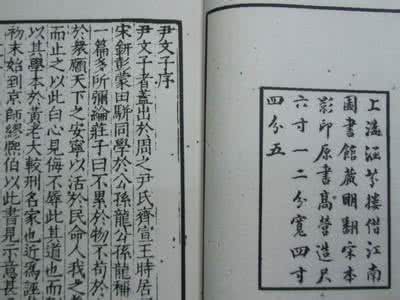 上海涵芬樓借江南
圖書館藏明翻宋本
影印原書高營造尺
六寸一二分寬四寸
四分五
尹文子序
尹文子者蓋出於周之尹氏齊宣王時居
宋鈃彭蒙田駢同學於公孫龍公孫龍稱
一篇多所彌綸莊子曰不累於物不苟於
於衆願天下之安寧以活於民命人我之
而止之以此白心見侮不辱此其道也而
以其學本於黃老大較刑名家也近爲誣
初末始到京師繆熙伯以此書見示意甚